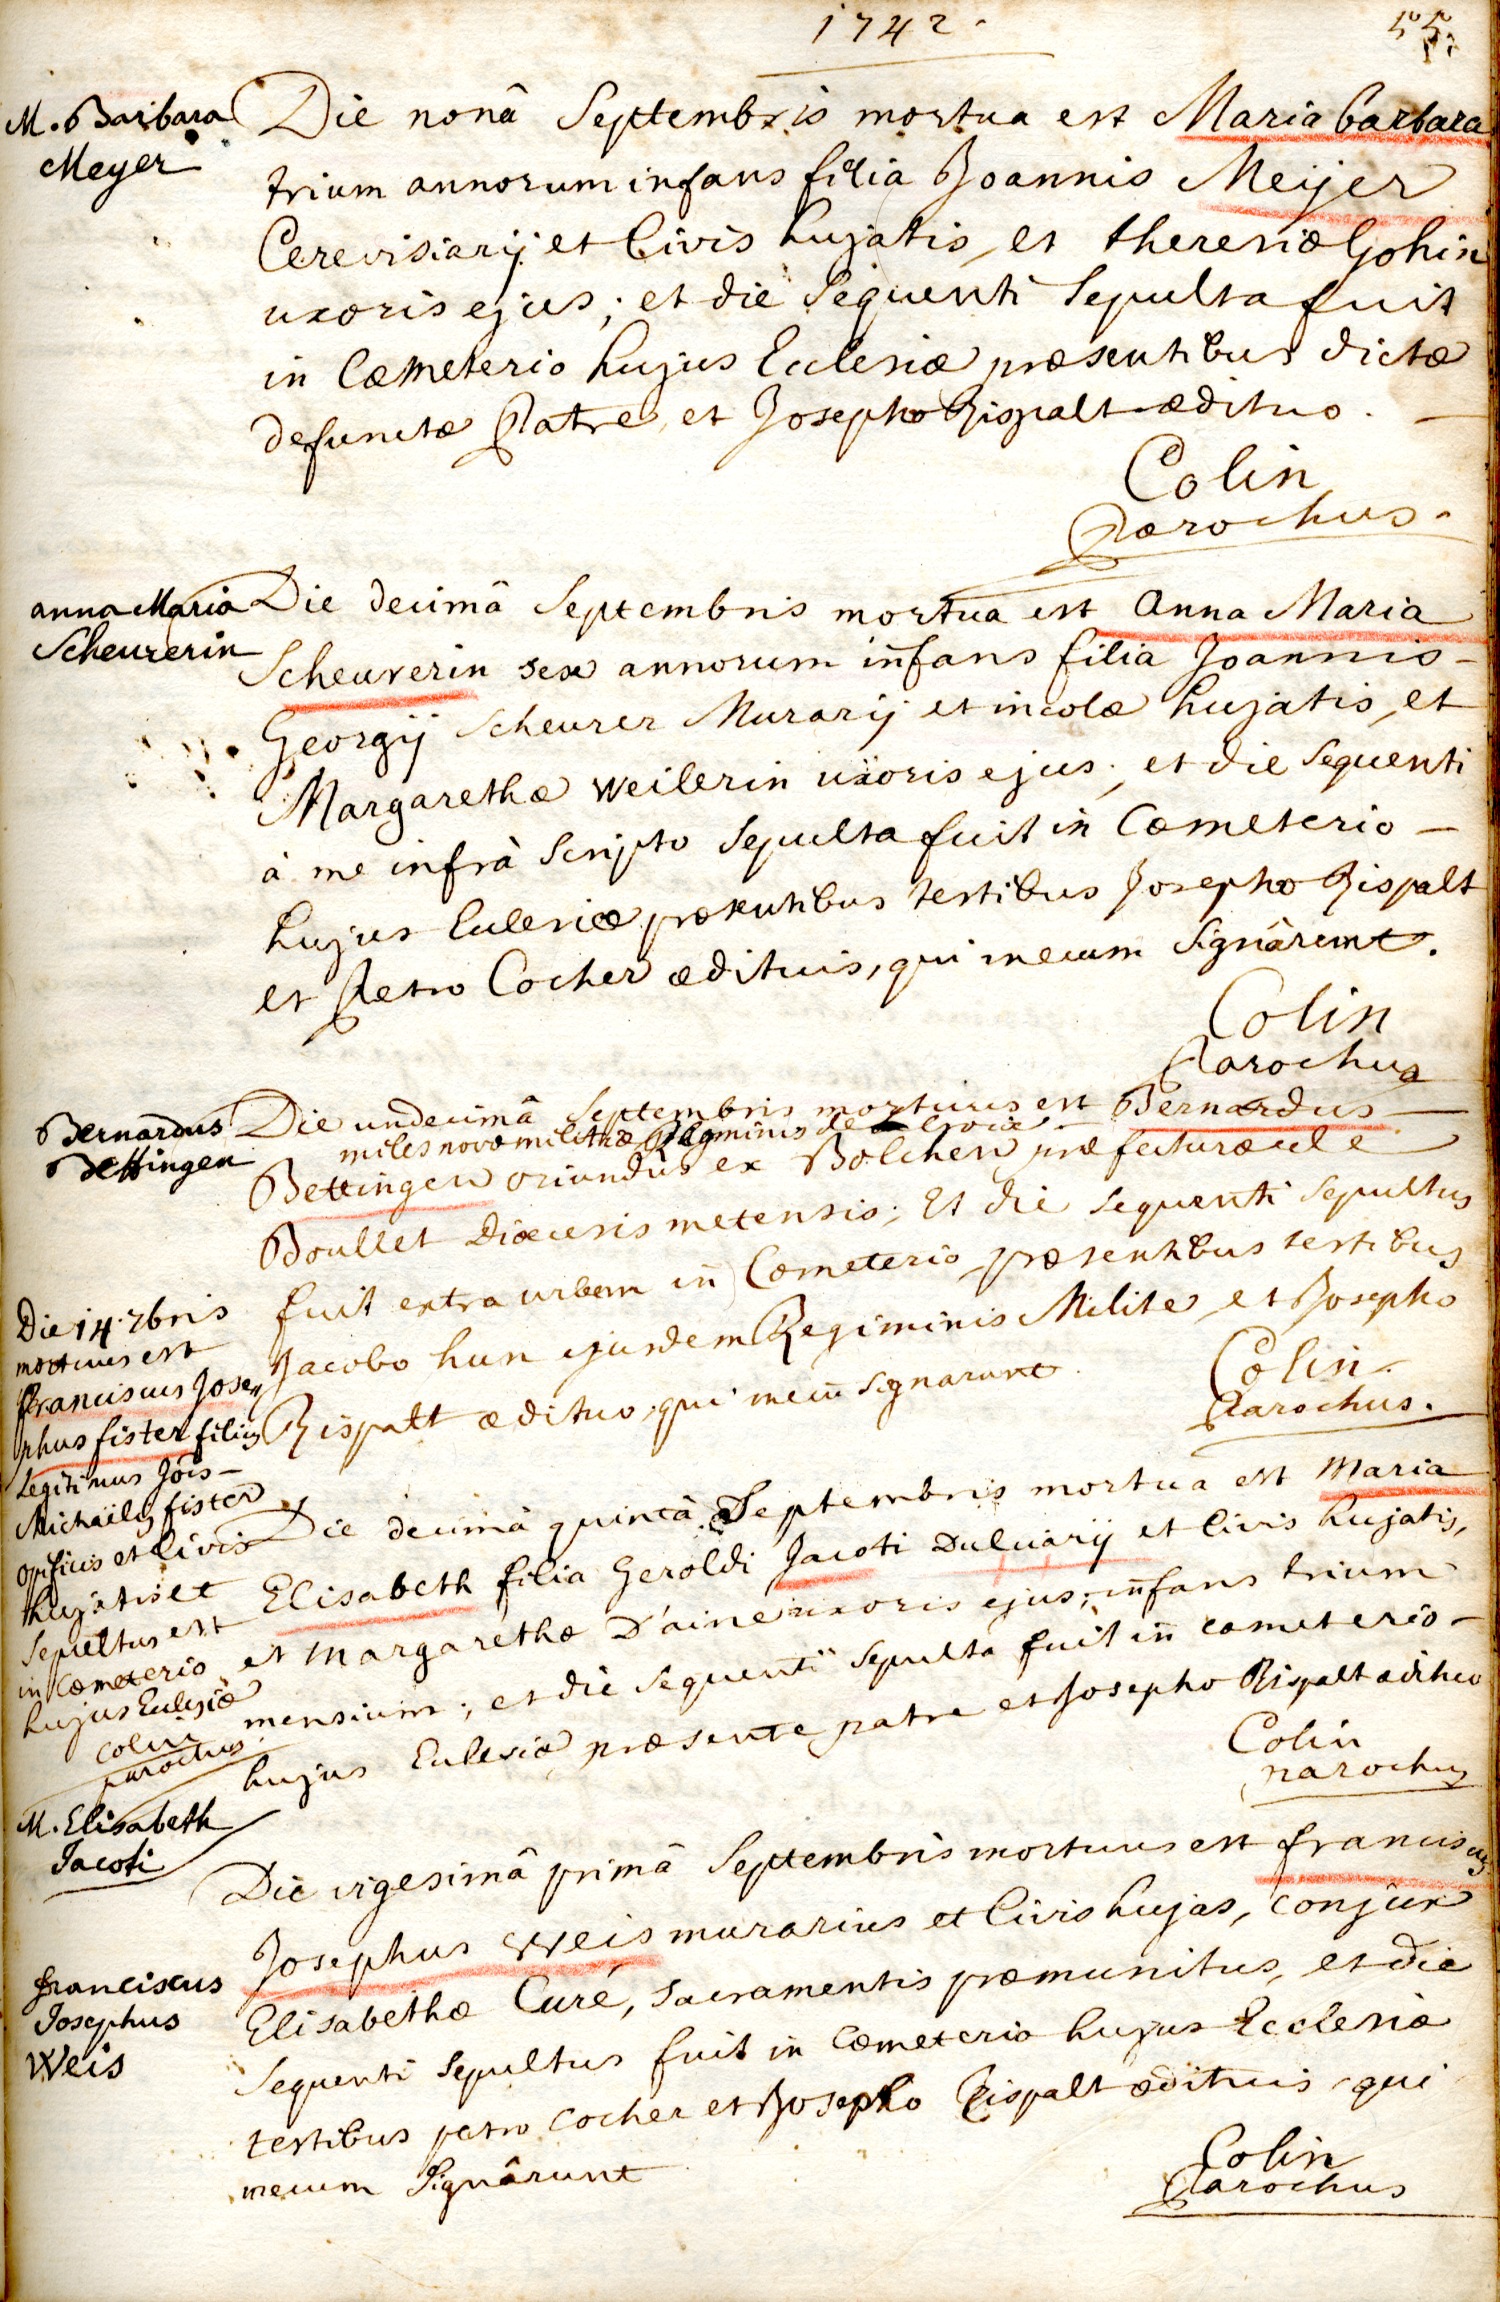 1742.
55.
M. Barbara
Meyer
Die nonâ Septembris mortua est Maria barbara
trium annorum infans filia Joannis Meijer
Cerevisiarij et Civis hujatis, et theresiæ Gohin
uxoris ejus; et die sequenti sepulta fuit
in Cœmeterio hujus Ecclesiæ præsentibus dictæ
defunctæ Patre, et Josepho Rispalt ædituo.
Colin
Parochus.
anna Maria
Scheurerin
Die decimâ Septembris mortua est Anna Maria
Scheurerin sex annorum infans filia Joannis
Georgij Scheurer Murarij et incolæ hujatis, et
Margarethæ Weilerin uxoris ejus, et die sequenti
à me infrà scripto sepulta fuit in Cœmeterio
hujus Ecclesiæ præsentibus testibus Josepho Rispalt
et Petro Cocher ædituis, qui mecum signârunt.
Colin
Parochus
Bernardus
Bettingen
Die undecimâ Septembris mortuus est Bernardus
miles novæ militiæ Regiminis de Croix
Bettingen oriundus ex Bolchen præfecturæ de
Boullet Diœcesis metensis; Et die sequenti sepultus
fuit extra urbem in Cœmeterio, præsentibus testibus
Jacobo hun ejusdem Regiminis Milite, et Josepho
Rispalt ædituo, qui mecū signarunt.
Colin
Parochus.
Die 14. 7bris
mortuus est
franciscus Jose
phus fister filius
Legitimus Jōis
Michaëlis fister
opificis et Civis
hujatis et
sepultus est
in Cœmeterio
hujus Ecclesiæ
Colin
parochus.
M. Elisabeth
Jacoti
Die decimâ quintâ Septembris mortua est Maria
Elisabeth filia Geroldi Jacoti Dulciarij et Civis hujatis,
et Margarethæ D'aine uxoris ejus, infans trium
mensium; et die sequenti sepulta fuit in cœmeterio
hujus Ecclesiæ, præsente patre et Josepho Rispalt ædituo
Colin
parochus
franciscus
Josephus
Weis
Die vigesimâ primâ Septembris mortuus est franciscus
Josephus Weis murarius et Civis hujas, conjux
Elisabethæ Curé, sacramentis præmunitus, et die
sequenti sepultus fuit in Cœmeterio hujus Ecclesiæ
testibus petro Cocher et Josepho Rispalt ædituis qui
mecum signârunt
Colin
Parochus